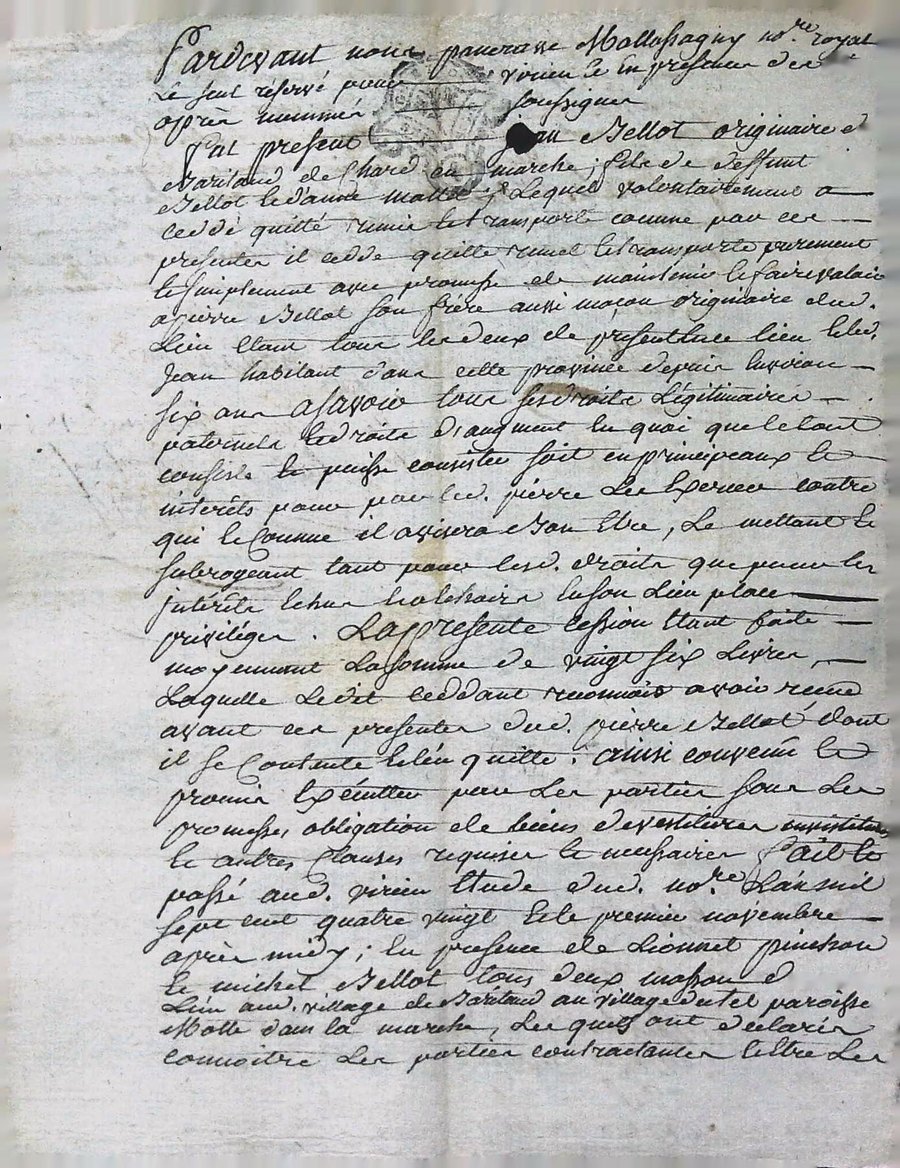 Pardevant nous pancrasse Mollassagny no.re royal
Le seul réservé pour virieu Le en presence des
après nommés soussignés
fut present Jean Bellot originaire d
de Chard en marche; fils de deffunt
Bellot et d'anne ; Lequel volontairement a
ceddé quitté remis et transporté comme par ces
presentes il cedde quitte remet et transporte purement
et simplement avec promesse de maintenir et faire valoir
a pierre Bellot son frère aussi maçon originaire dud.
Lieu etant tous les deux de present
Jean habitant dans cette province depuis environ
six ans asavoir tous ses droits Légitimaires
paternels et droits d'augment en quoi que le tout
consiste et puisse consister soit en principeaux et
intérêts pour par led. pierre Les Exercer contre
qui et Comme il avisera Bon Etre, Le mettant et
subrogeant tant pour lesd. droits que pour les
intérêts en son Lieu place
privilèges. La presente cession etant faite
moyennant La somme de vingt six Livres,
Laquelle Ledit ceddant reconnais avoir reçue
avant ces presentes dud. pierre Bellot dont
il se Contente et l'en quitte. ainsi convenu et
promis Exécutter par Les parties sous Les
promesses, obligation de biens devestitures investitures
et autres Clauses requises et necessaires fait et
passé aud. virieu Etude dud. no.re L'an mil
sept cent quatre vingt et le premier novembre
après midy; En presence de Lionnet pinchon
et michel Bellot tous deux masson d
Lieu aud. village de au village paroisse
Motte dans la marche, Lesquels ont déclarés
connoitre Les parties contractantes et etre Les